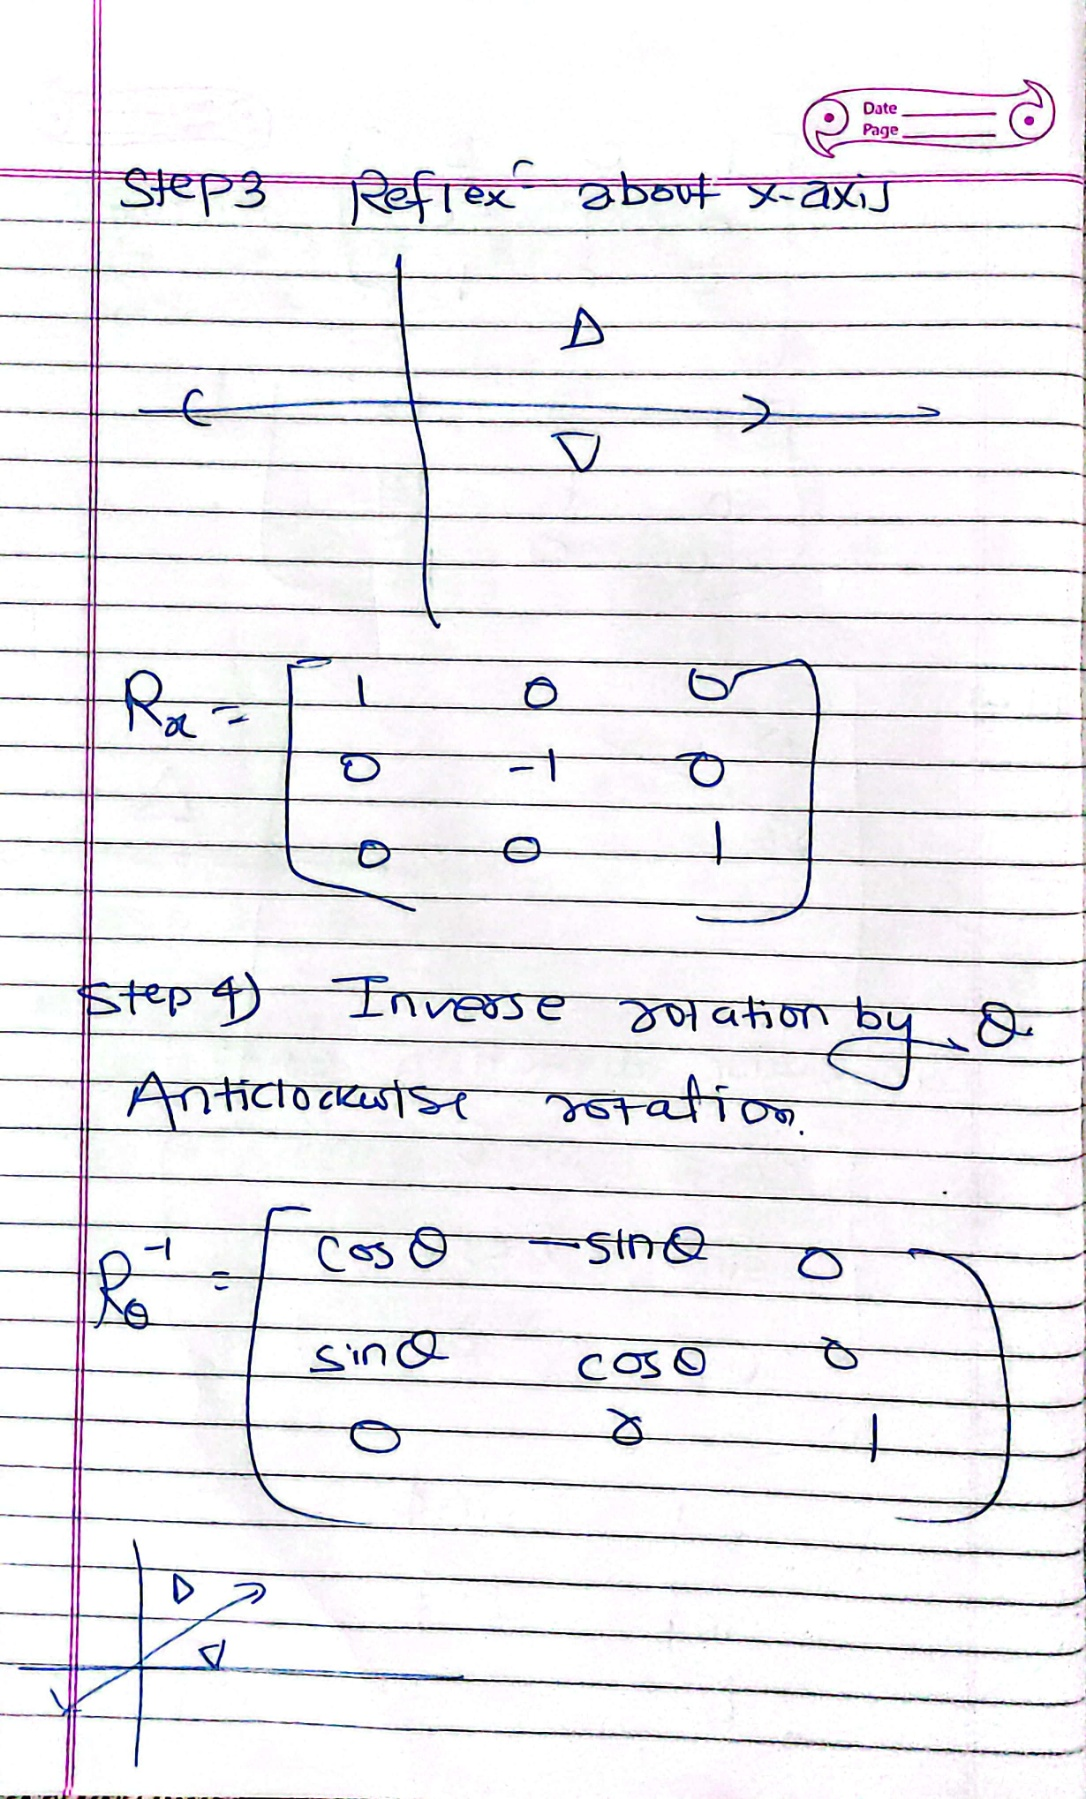 Date
Page
Step3 Reflexn about x-axis
Rx = [ 1 0 0
0 -1 0
0 0 1 ]
Step 4) Inverse rotation by θ
Anticlockwise rotation.
Rθ⁻¹ = [ cosθ -sinθ 0
sinθ cosθ 0
0 0 1 ]